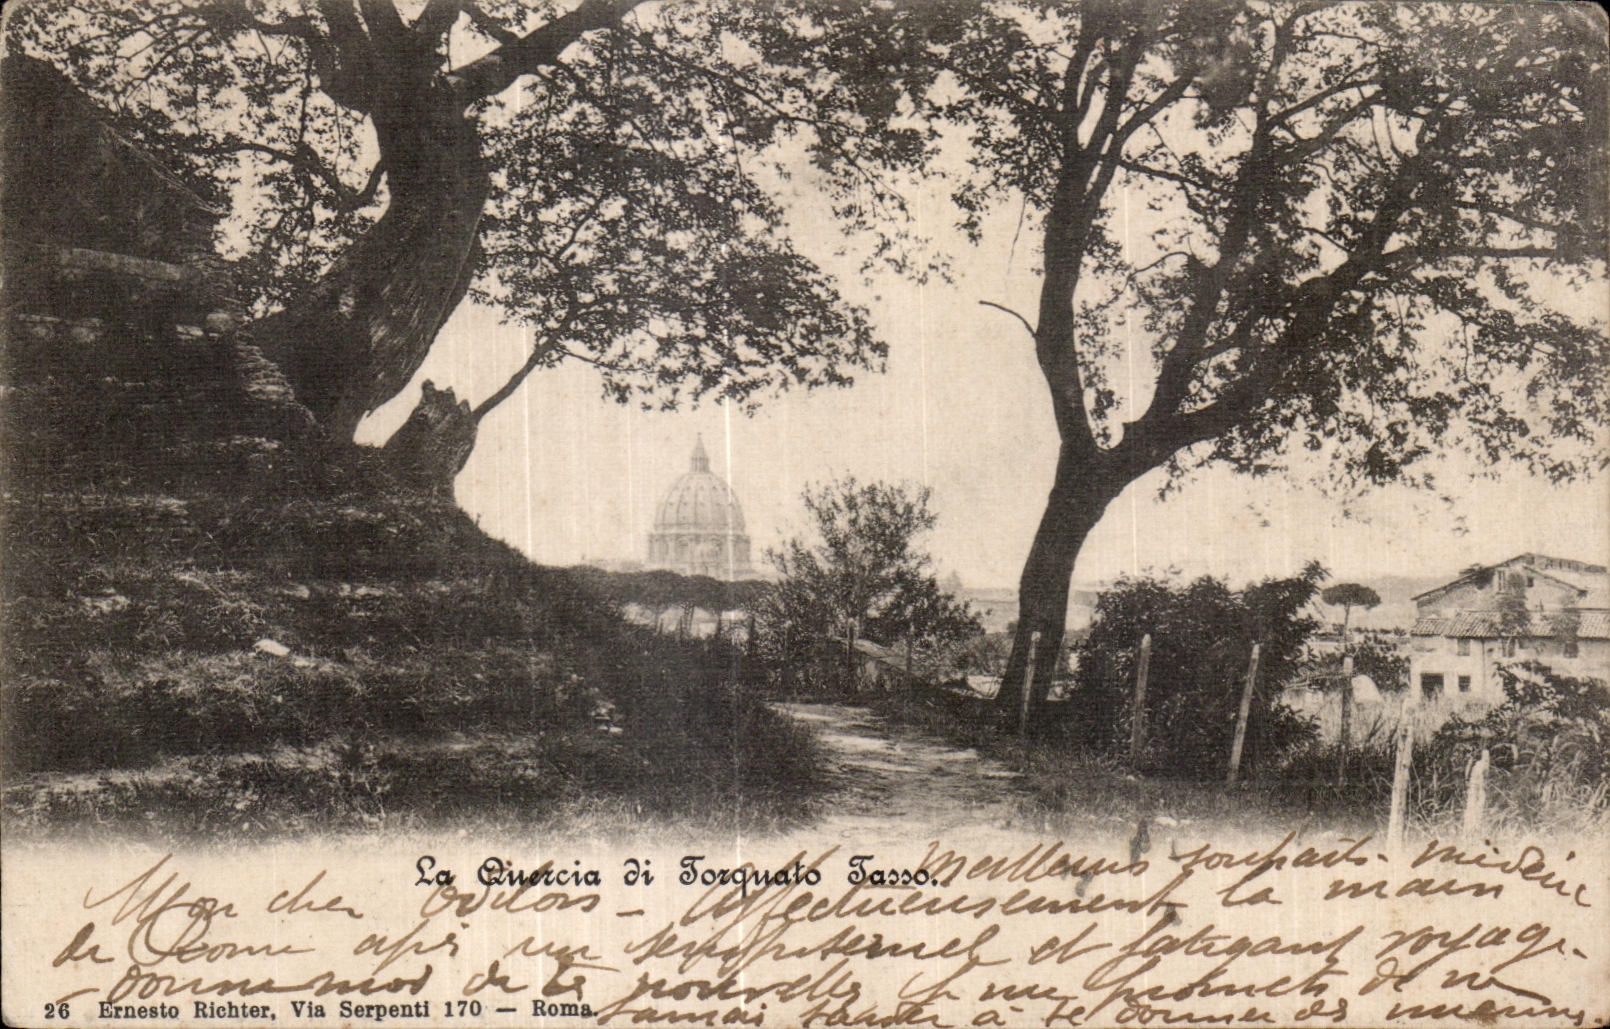 La Quercia di Torquato Tasso.
Meilleurs souhaits.
Mon cher Odilon – Affectueusement la main
de Rome après un sempiternel et fatigant voyage.
Donne moi de tes nouvelles je me promets de ne
jamais tarder à te donner des miennes.
26 Ernesto Richter, Via Serpenti 170 — Roma.